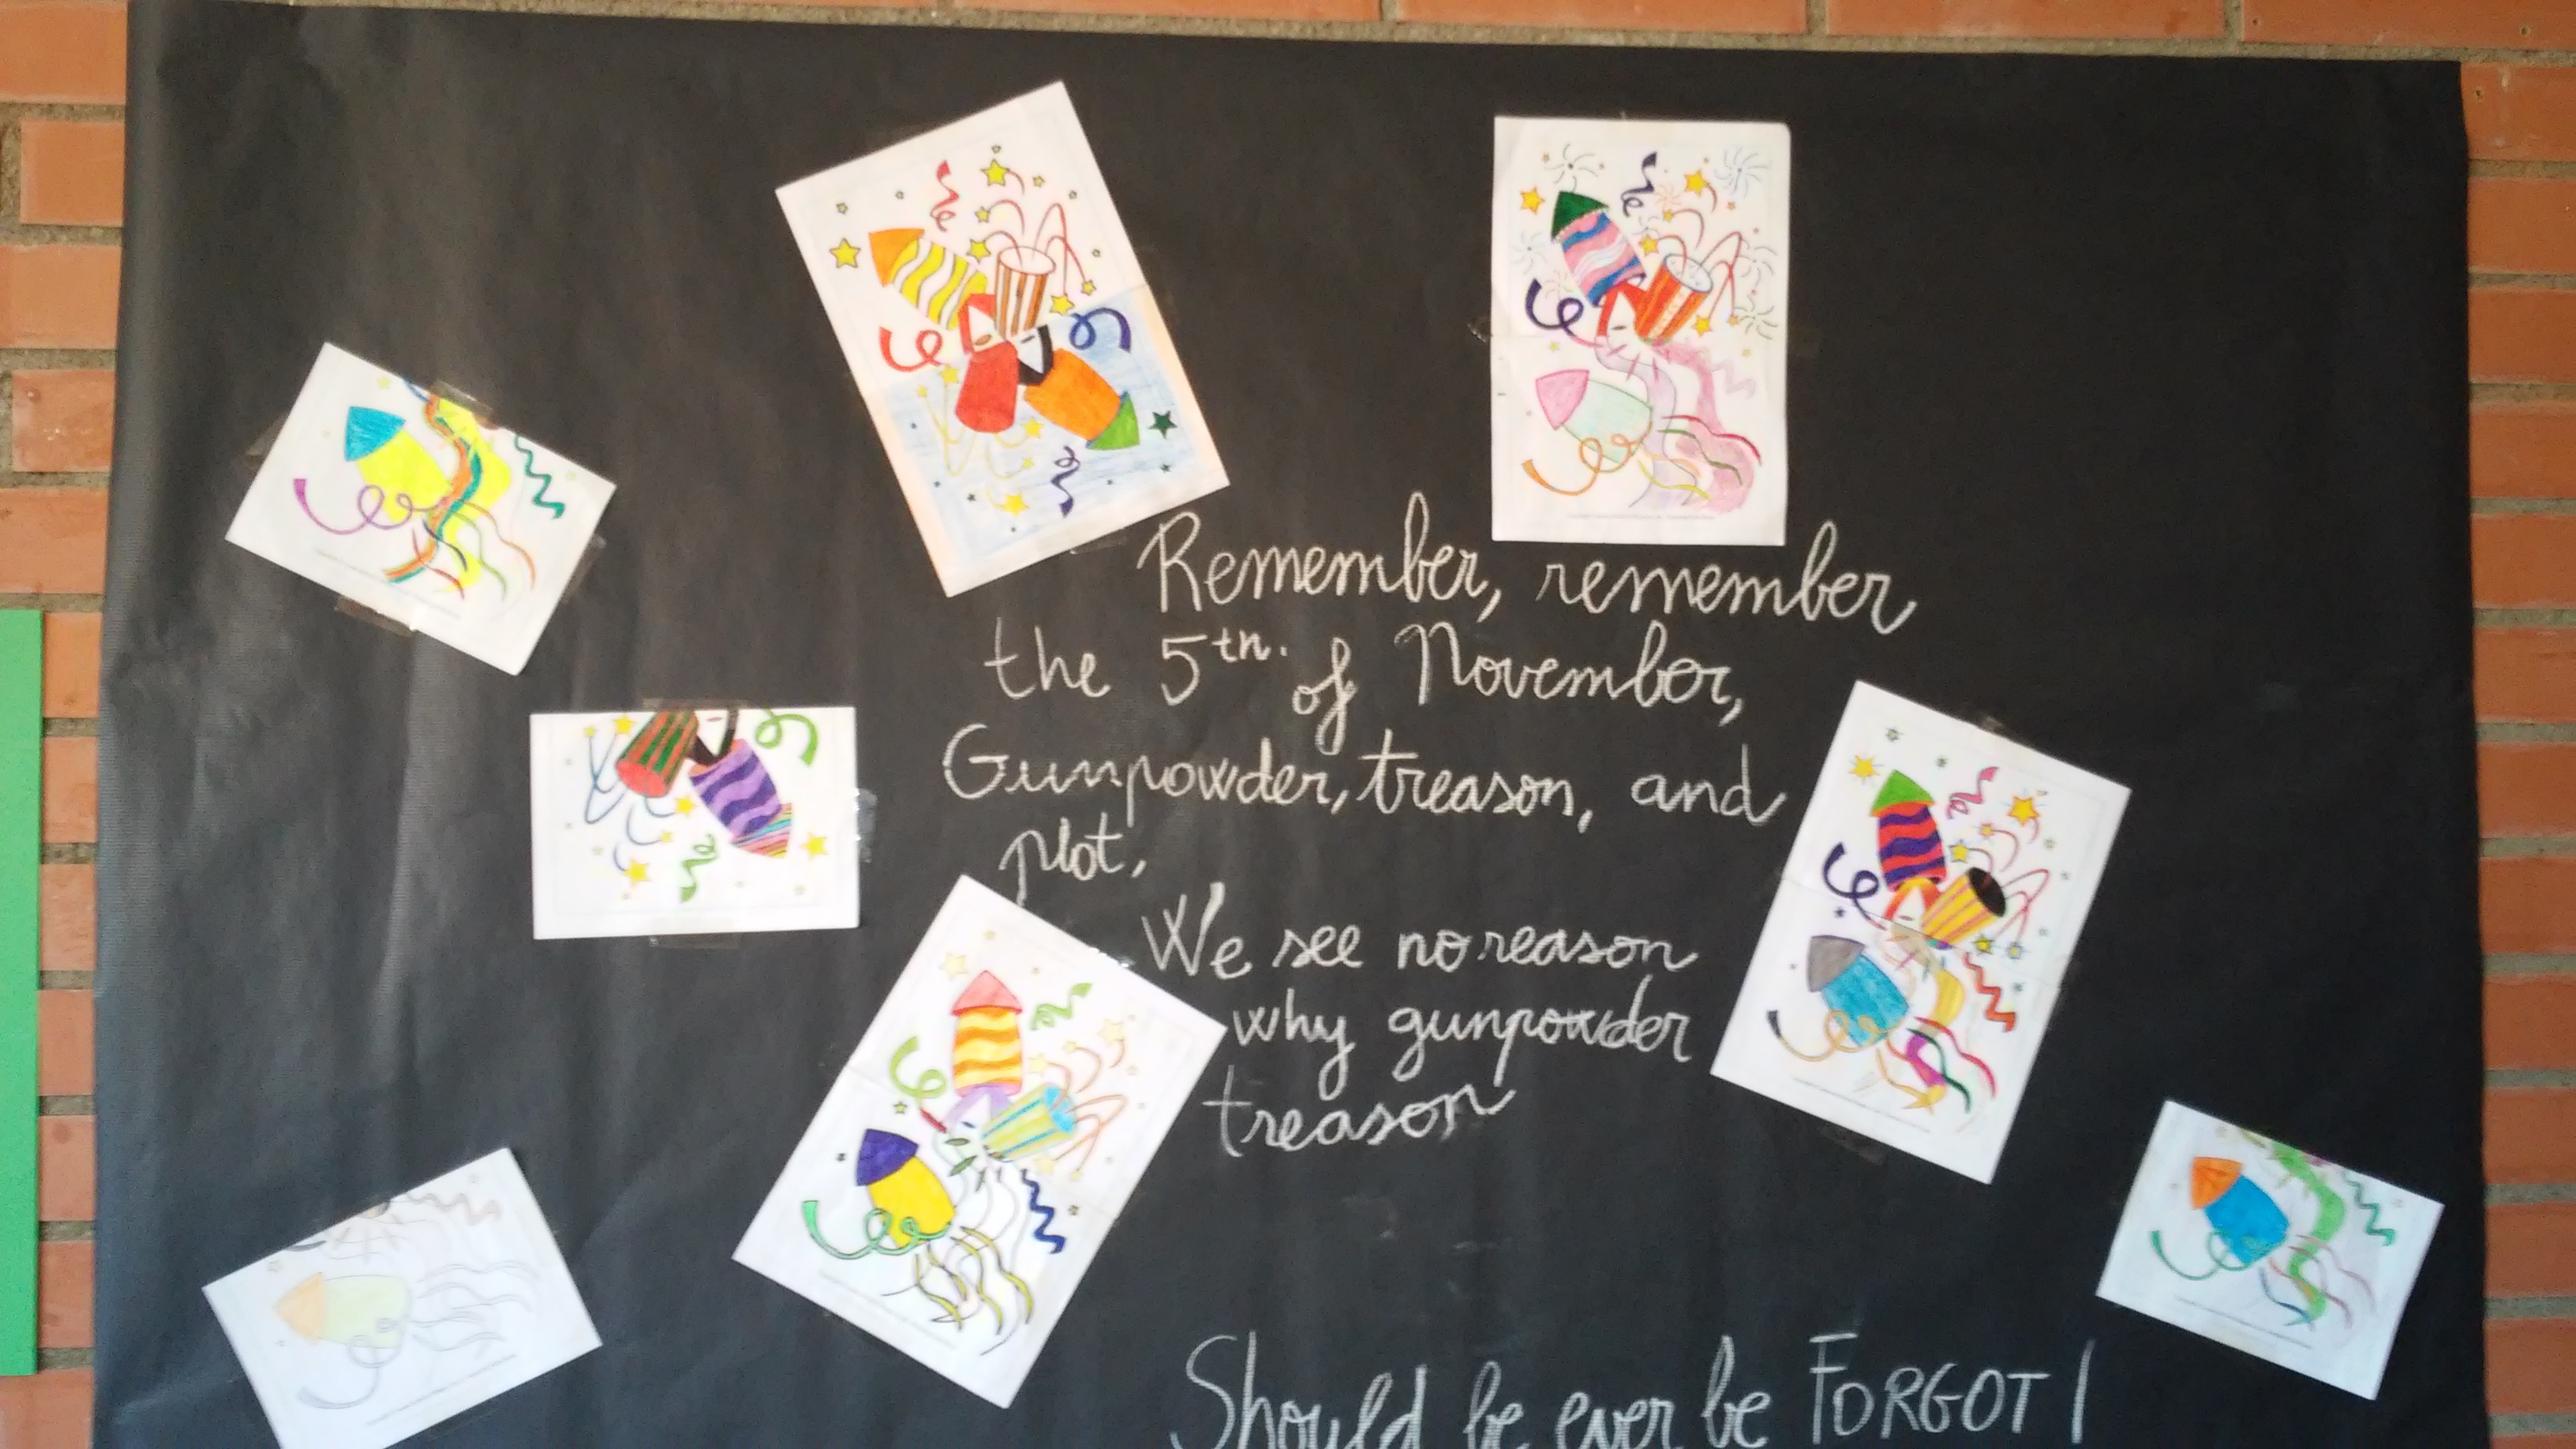 Remember, remember
the 5th. of November,
Gunpowder, treason, and
plot,
We see no reason
why gunpowder
treason
Should be ever be FORGOT!